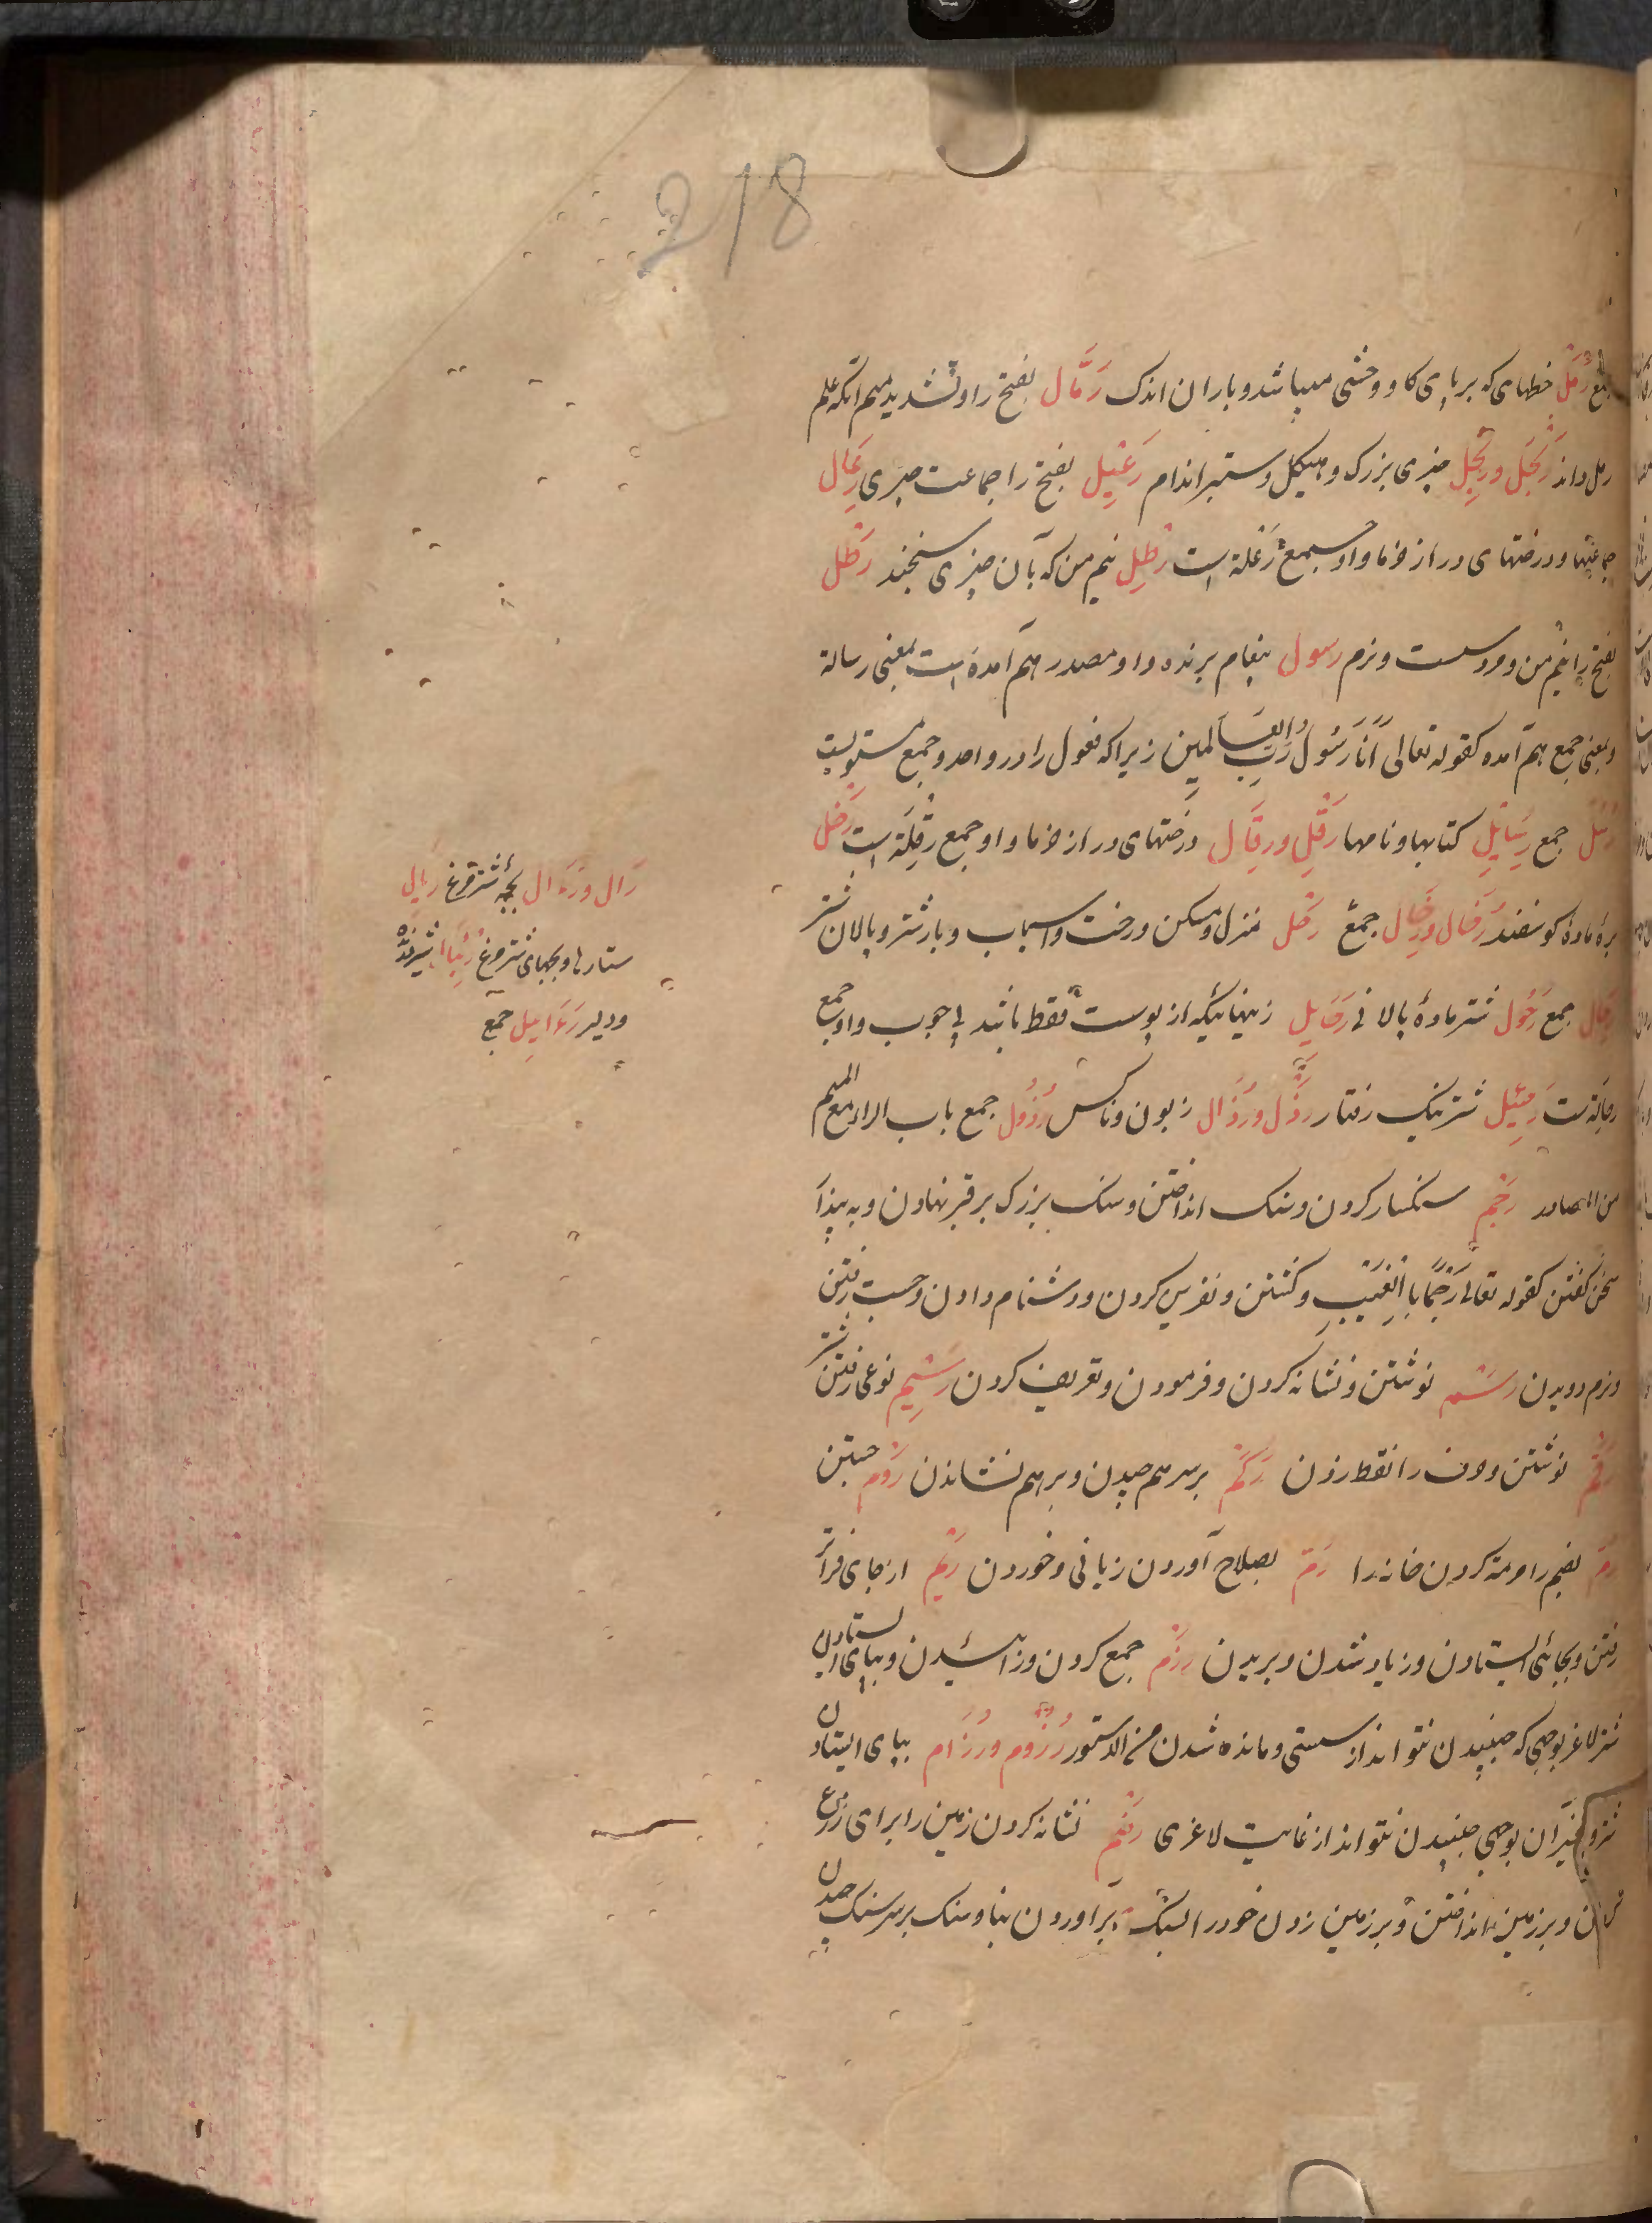 218
جمع رَمَلْ خطهای که بر پای کاو وحشی میباشد و باران اندک رَمَّال بفتح را و تشدید میم آنکه علم
رمل داند رَبَحْل و رِبَحْل چیزی بزرک و هیکل و ستبر اندام رَعِیْل بفتح را جماعت چیزی رِعَال
جماعتها و درختهای دراز خرما و او جمع رَعْلَة است رِطْل نیم من که بآن چیزی سنجند رَطْل
بفتح را نیم من و مرد سست و نرم رسول پیغام برنده و او مصدر هم آمده است بمعنی رسالة
و بمعنی جمع هم آمده کقوله تعالی اَنَا رَسُولُ رَبِّ العَالَمین زیرا که فعول را در واحد و جمع مستویست
رُسُل جمع رَسَائِل کتابها و نامها رَقْل و رِقَال درختهای دراز خرما و او جمع رَقْلَة است رَخْل
برۀ مادۀ کوسفند رُخَال و رِخَال جمع رَحْل منزل و مسکن و رخت و اسباب و بار شتر و پالان شتر
رِحَال جمع رَحُول شتر مادۀ پالانی رَحَایِل زینهائیکه از پوست فقط باشد بی چوب و او جمع
رحالة است رَحِیْل شتر نیک رفتار رَذْل و رُذَال زبون و ناکس رُذُول جمع باب الراء مع المیم
من المصادر رَجْم سنکسار کردن و سنک انداختن و سنک بزرک بر قبر نهادن و به پندار
سخن کفتن کقوله تعالی رَجْمًا بِالْغَیْبِ و کشتن و نفرین کردن و دشنام دادن و چست رفتن
و نرم دویدن رَسْم نوشتن و نشانه کردن و فرمودن و تعریف کردن رَسِیْم نوعی رفتن شتر
رَقْم نوشتن و حرف را نقطه زدن رَکْم بر سر هم چیدن و بر هم نشاندن رَوْم جستن
رَمّ بضم را مرمه کردن خانه را رَمّ بصلاح آوردن زیانی و خوردن رَیْم از جای فراتر
رفتن و بجائی ایستادن و زیاد شدن و بریدن رَزْم جمع کردن و زائیدن و بپای ایستادن
شتر لاغر بوجهی که جنبیدن نتواند از سستی و مانده شدن من الدستور رُزُوم و رُزَام بپای ایستادن
شتر و غیر آن بوجهی جنبیدن نتواند از غایت لاغری رَقْم نشانه کردن زمین را برای زرع
و بر زمین انداختن و بر زمین زدن خود را برآوردن بنا و سنک بر سر سنک چیدن
رَال و رُءَال بچۀ شترمرغ رِیَال
ستارها و بچهای شترمرغ رِیبال شیر درنده
و دلیر رَءَابِیل جمع